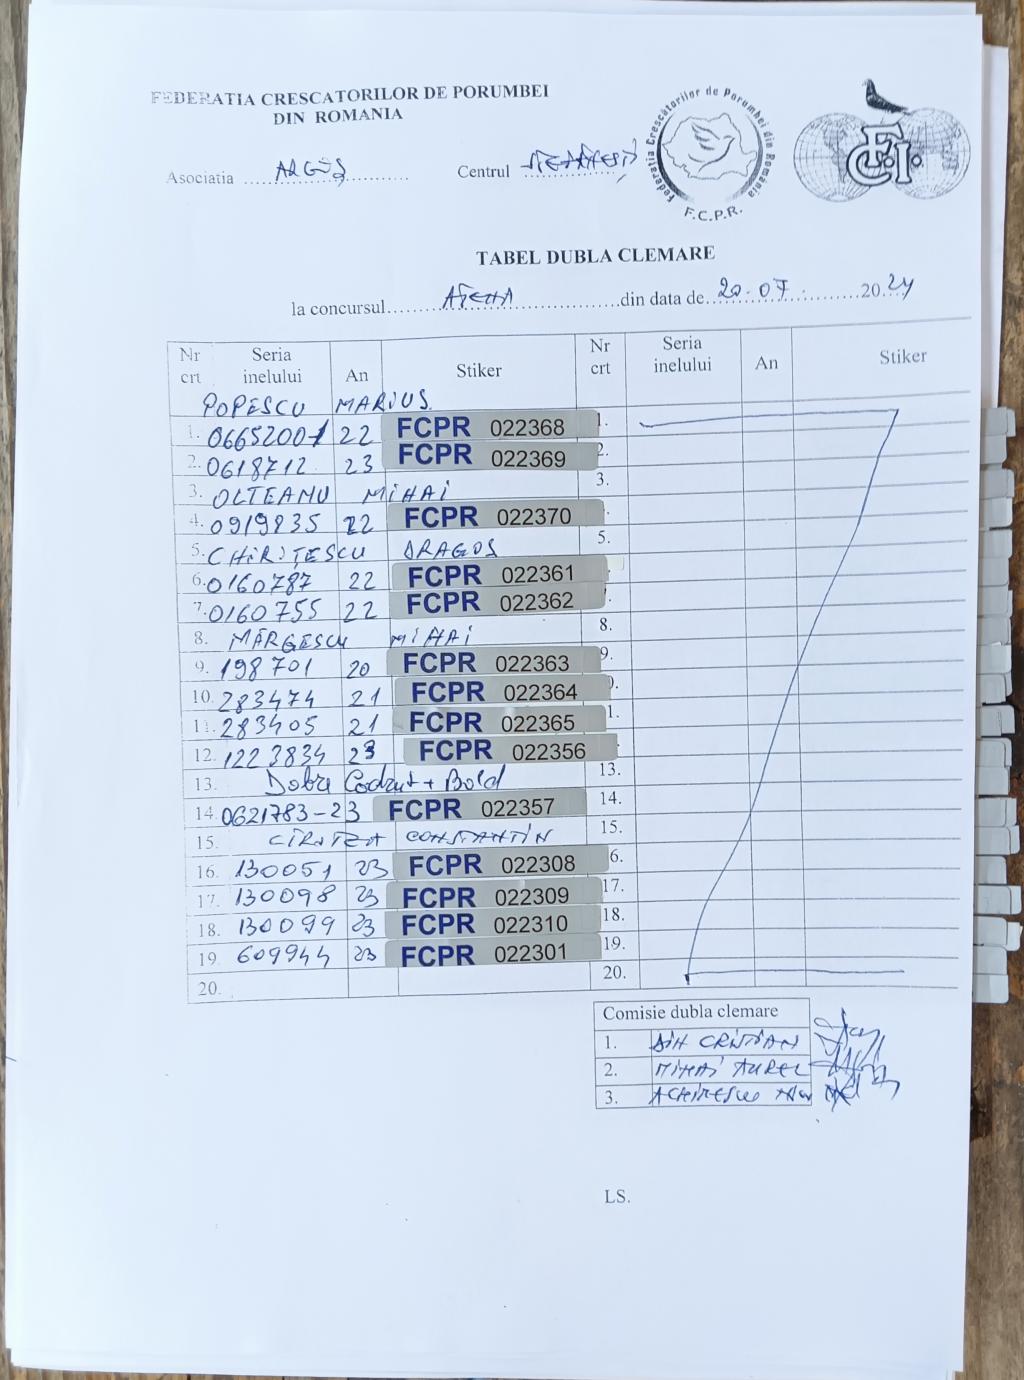 FEDERATIA CRESCATORILOR DE PORUMBEI
DIN ROMANIA
Federatia Crescatorilor de Porumbei din Romania
F.C.P.R.
F.C.I.
Asociatia ARGEȘ
Centrul
TABEL DUBLA CLEMARE
la concursul ATENA din data de 20.07. 2024
Nr crt Seria inelului An Stiker Nr crt Seria inelului An Stiker
POPESCU MARIUS
1. 0665200 22 FCPR 022368 1.
2. 0618712 23 FCPR 022369 2.
3. OLTEANU MIHAI 3.
4. 0919835 22 FCPR 022370
5. CHIRIȚESCU DRAGOS 5.
6. 0160787 22 FCPR 022361
7. 0160755 22 FCPR 022362
8. MĂRGESCU MIHAI 8.
9. 198701 20 FCPR 022363 9.
10. 283474 21 FCPR 022364
11. 283405 21 FCPR 022365
12. 1223834 23 FCPR 022356
13. Dobre Codrut + Bold 13.
14. 0621783-23 FCPR 022357 14.
15. CONSTANTIN 15.
16. 130051 23 FCPR 022308 16.
17. 130098 23 FCPR 022309 17.
18. 130099 23 FCPR 022310 18.
19. 609944 23 FCPR 022301 19.
20. 20.
Comisie dubla clemare
1. CRISTIAN
2. MIHAI AUREL
3.
LS.